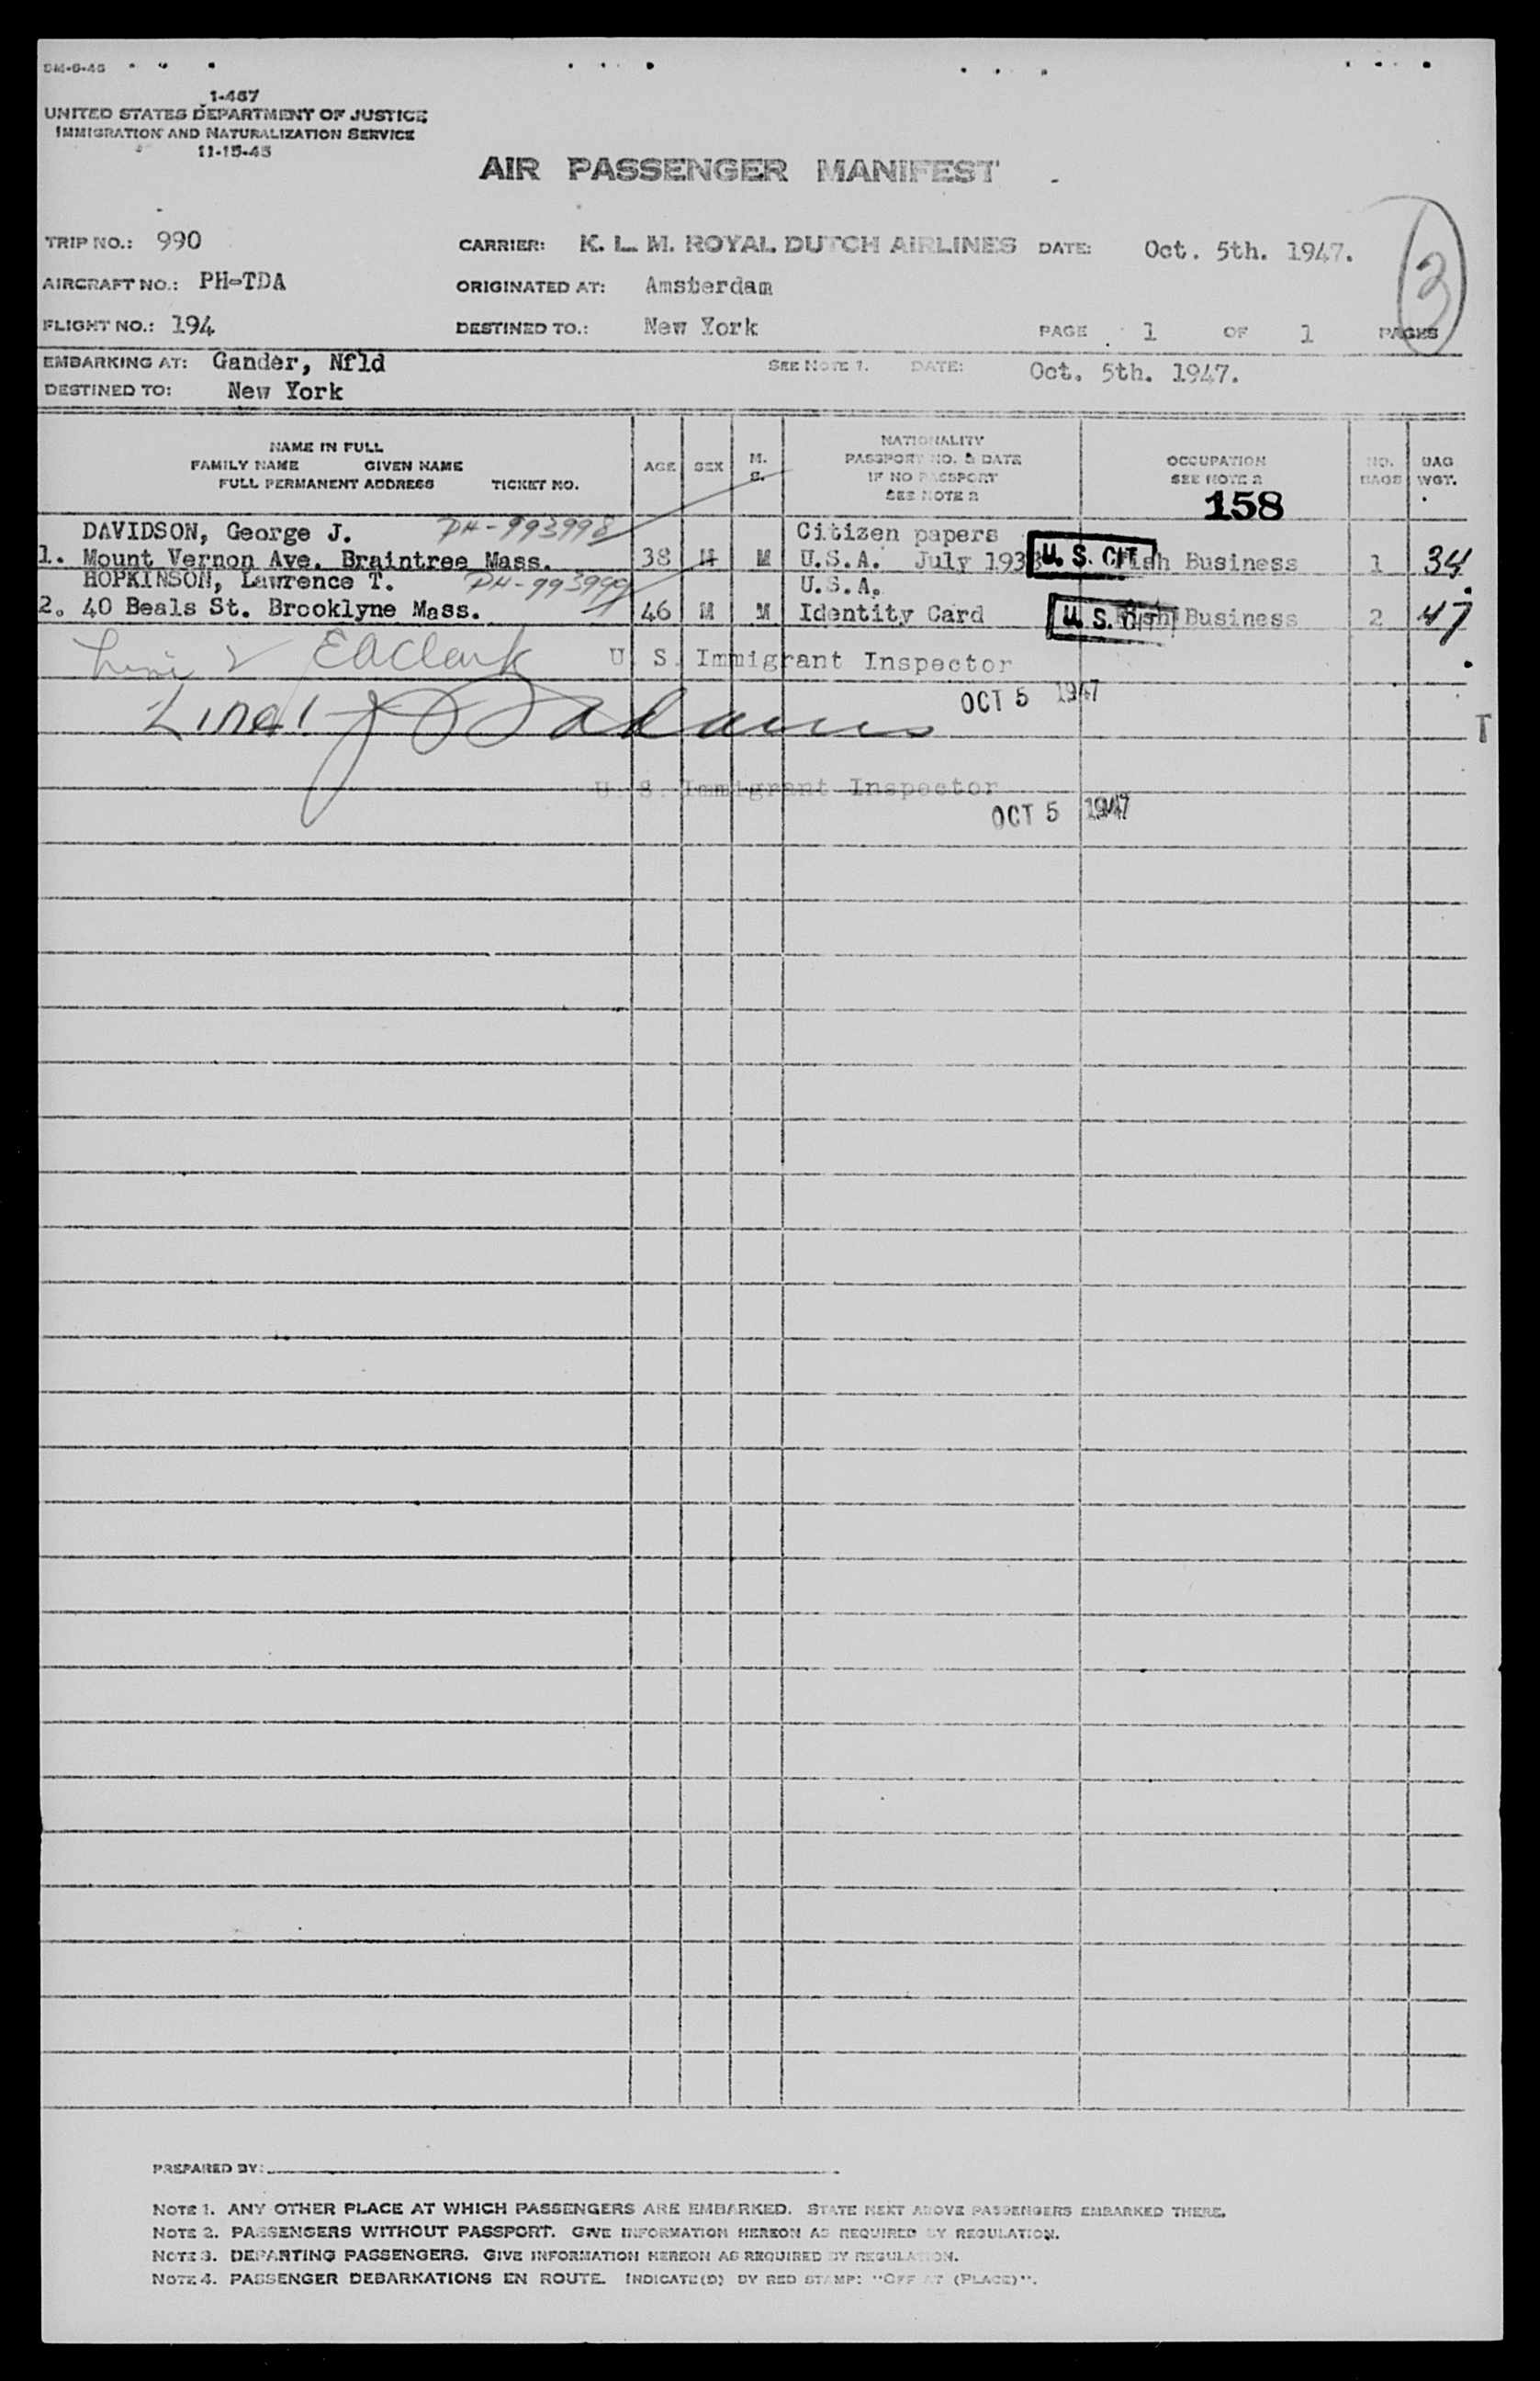 DM-6-45
1-467
UNITED STATES DEPARTMENT OF JUSTICE
IMMIGRATION AND NATURALIZATION SERVICE
11-15-45
AIR PASSENGER MANIFEST
TRIP NO.: 990 CARRIER: K. L. M. ROYAL DUTCH AIRLINES DATE: Oct. 5th. 1947.
3
AIRCRAFT NO.: PH-TDA ORIGINATED AT: Amsterdam
FLIGHT NO.: 194 DESTINED TO.: New York PAGE 1 OF 1 PAGES
EMBARKING AT: Gander, Nfld SEE NOTE 1. DATE: Oct. 5th. 1947.
DESTINED TO: New York
NAME IN FULL
FAMILY NAME GIVEN NAME
FULL PERMANENT ADDRESS TICKET NO.
AGE SEX M. S.
NATIONALITY
PASSPORT NO. & DATE
IF NO PASSPORT
SEE NOTE 2
OCCUPATION
SEE NOTE 2
NO. BAGS
BAG WGT.
158
DAVIDSON, George J. PH-993998 Citizen papers
1. Mount Vernon Ave. Braintree Mass. 38 M M U.S.A. July 1938 U. S. CIT Business 1 34
HOPKINSON, Lawrence T. PH-993999 U.S.A.
2. 40 Beals St. Brooklyne Mass. 46 M M Identity Card U. S. Fish Business 2 47
Line 2 EAClark U. S. Immigrant Inspector
OCT 5 1947
Line 1 Adams
T
U. S. Immigrant Inspector
OCT 5 1947
PREPARED BY:
NOTE 1. ANY OTHER PLACE AT WHICH PASSENGERS ARE EMBARKED. STATE NEXT ABOVE PASSENGERS EMBARKED THERE.
NOTE 2. PASSENGERS WITHOUT PASSPORT. GIVE INFORMATION HEREON AS REQUIRED BY REGULATION.
NOTE 3. DEPARTING PASSENGERS. GIVE INFORMATION HEREON AS REQUIRED BY REGULATION.
NOTE 4. PASSENGER DEBARKATIONS EN ROUTE. INDICATE(D) BY RED STAMP: "OFF AT (PLACE)".